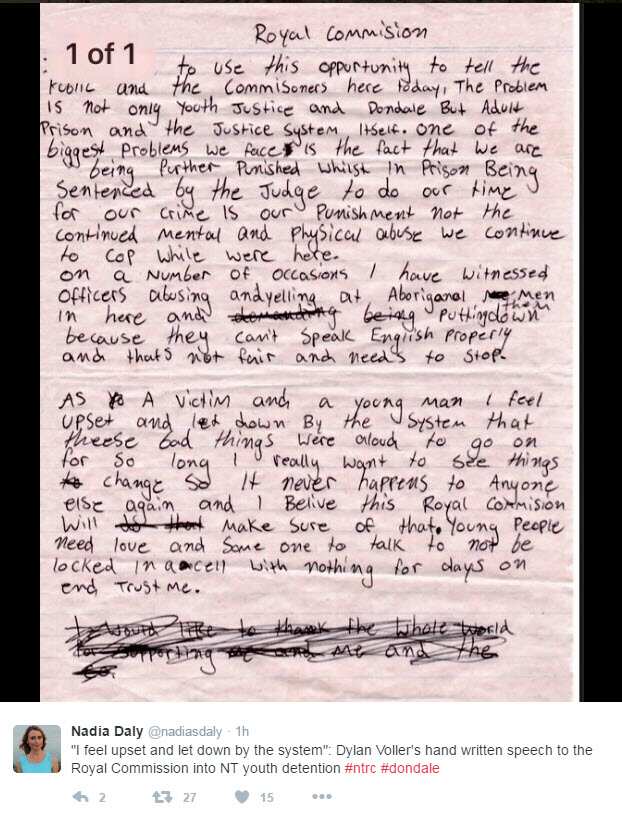 Royal Commision
1 of 1
to use this opportunity to tell the
Public and the Commisoners here today, The Problem
is not only Youth Justice and Dondale But Adult
Prison and the Justice System Itself. one of the
biggest Problems we face is the fact that we are
being further Punished whilst In Prison Being
Sentenced by the Judge to do our time
for our crime IS our Punishment not the
continued mental and Physical abuse we continue
to cop while were here.
on a Number of occasions I have witnessed
officers abusing andyelling at Aboriganal Men
in here and demanding being Puttingdown them
because they can't Speak English Properly
and thats not fair and needs to Stop.
AS A victim and a young man I feel
UPSet and let down By the System that
theese bad things were aloud to go on
for So long I really want to See things
change So It never happens to Anyone
else again and I Belive this Royal Commision
Will Make Sure of that. Young People
need love and Some one to talk to not be
locked In a cell with nothing for days on
end Trust me.
I would like to thank the Whole World
for Supporting me and me and the
Nadia Daly @nadiasdaly · 1h
"I feel upset and let down by the system": Dylan Voller's hand written speech to the
Royal Commission into NT youth detention #ntrc #dondale
2 27 15